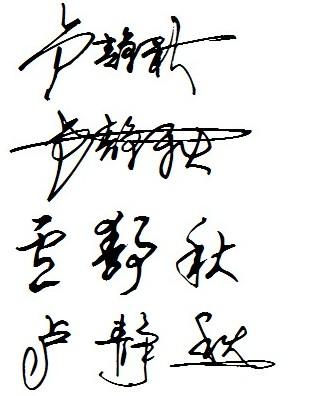 卢静秋
卢静秋
卢静秋
卢静秋